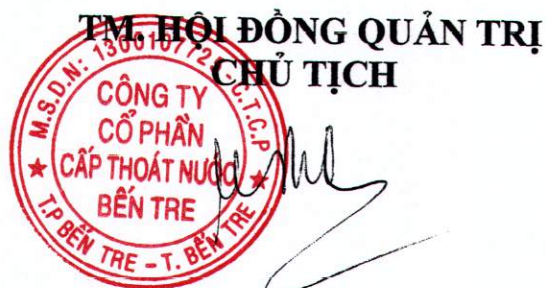 TM. HỘI ĐỒNG QUẢN TRỊ
CHỦ TỊCH
M.S.D.N: 1300107724-C.T.C.P
CÔNG TY
CỔ PHẦN
CẤP THOÁT NƯỚC
BẾN TRE
T.P BẾN TRE - T. BẾN TRE